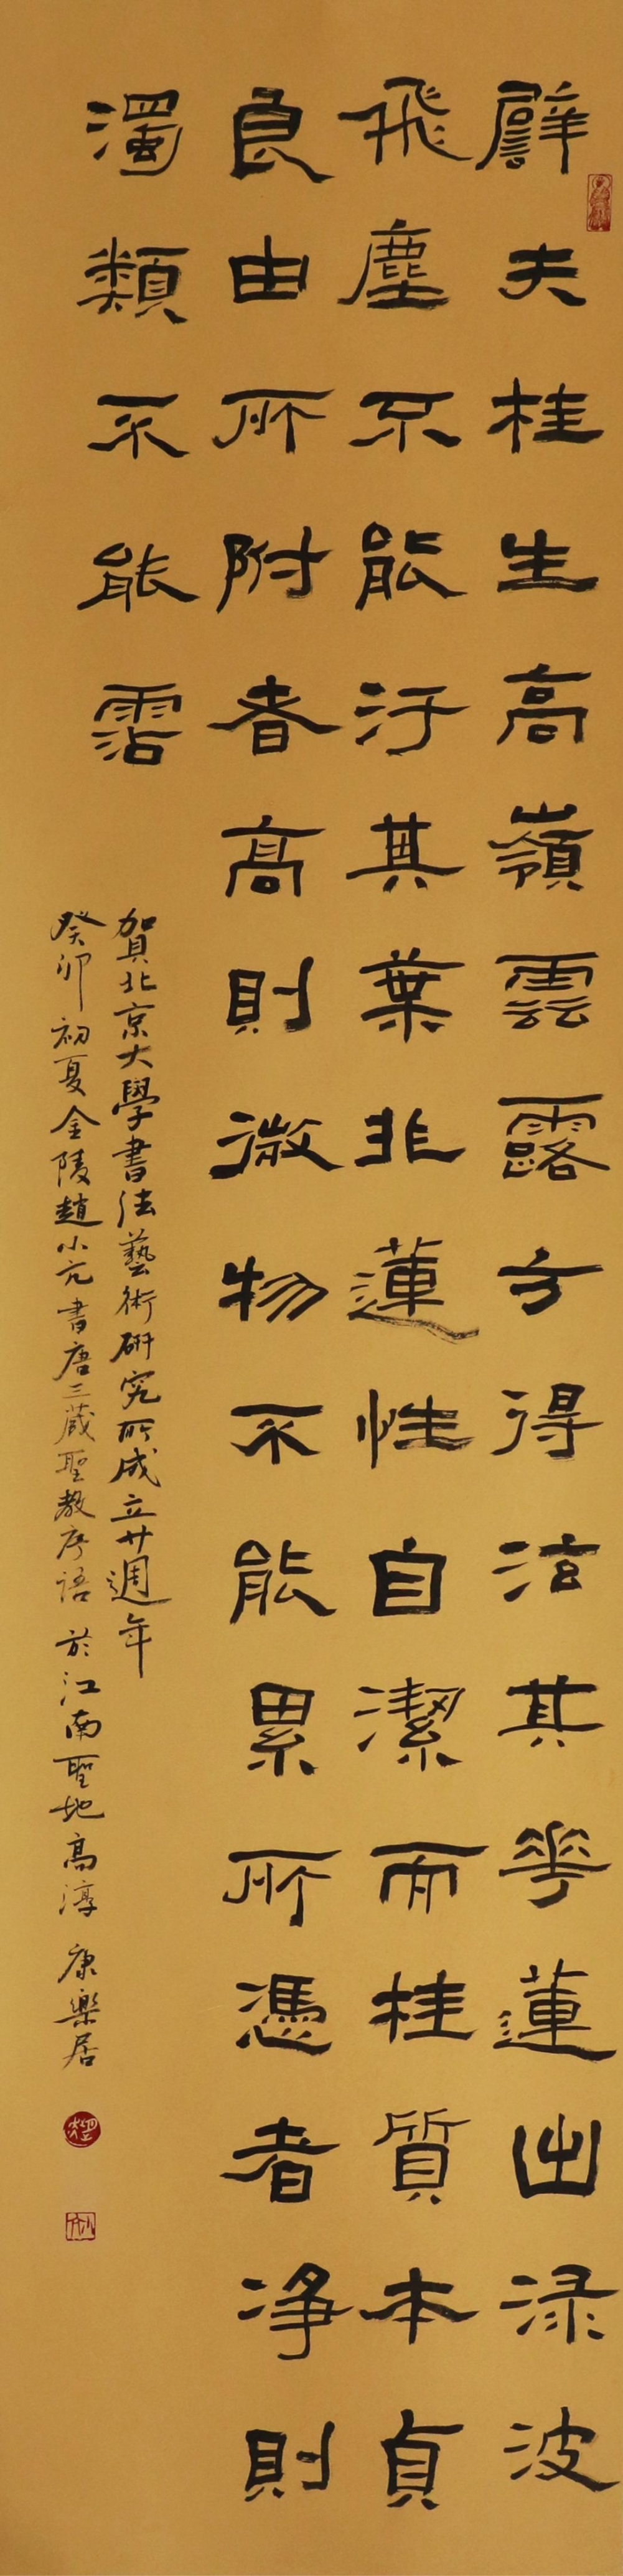 譬夫桂生高嶺雲露方得泫其花蓮出淥波
飛塵不能汙其葉非蓮性自潔而桂質本貞
良由所附者高則微物不能累所憑者净則
濁類不能霑
賀北京大學書法藝術研究所成立廿週年
癸卯初夏金陵趙小亢書唐三藏聖教序語於江南聖地高淳康樂居